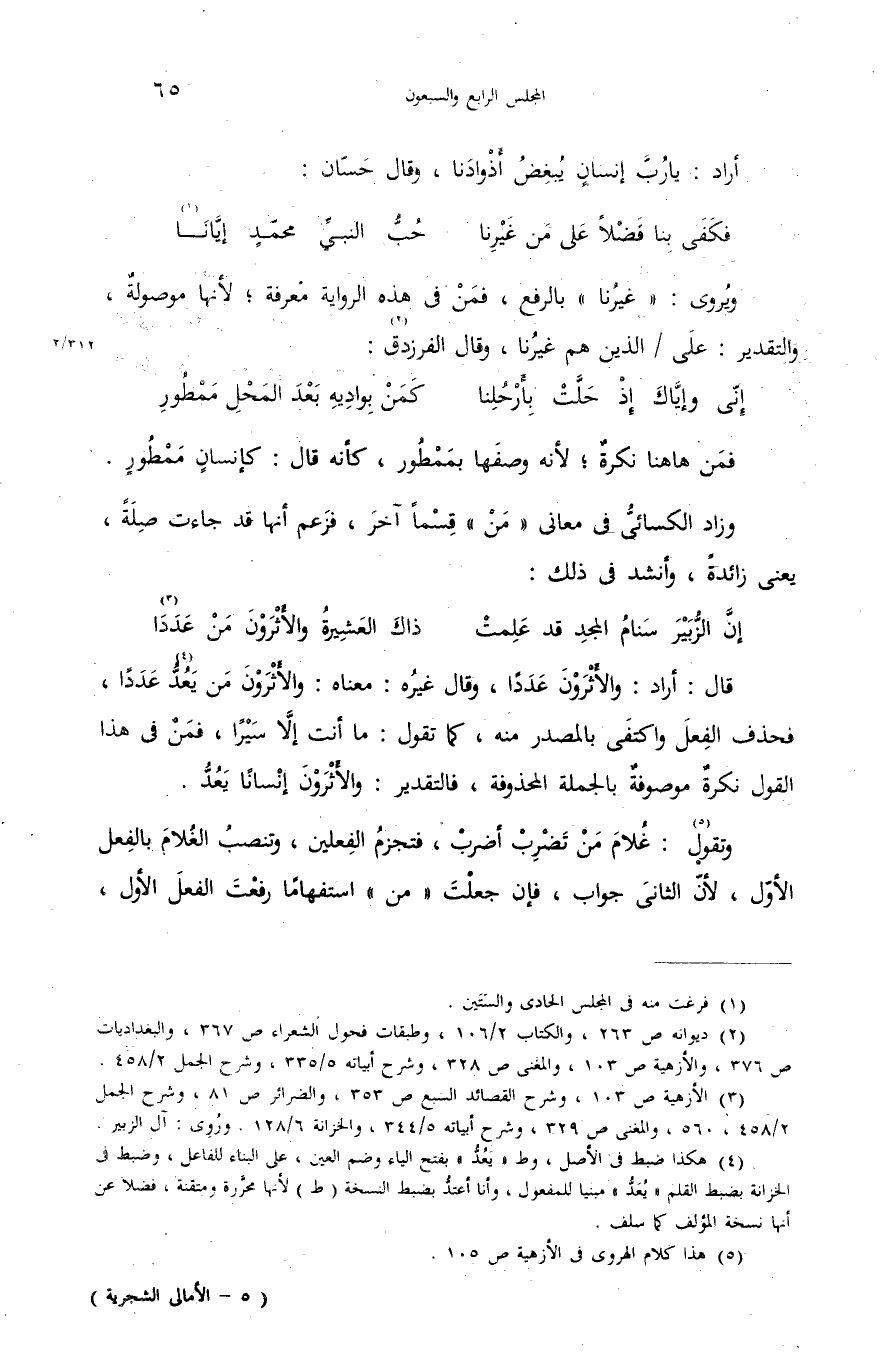 المجلس الرابع والسبعون ٦٥
أراد : يارُبَّ إنسانٍ يُبغِضُ أَذْوادَنا ، وقال حَسّان :
فكَفَى بنا فَضْلاً عَلى مَن غَيْرِنا حُبُّ النبيِّ محمّدٍ إيَّانَــا (١)
ويُروى : « غيرُنا » بالرفع ، فمَنْ فى هذه الرواية مَعرفة ؛ لأنها موصولةٌ ،
والتقدير : علَى / الذين هم غيرُنا ، وقال الفرزدق (٢) : ٢/٣١٢
إنّى وإيَّاكَ إذْ حَلَّتْ بِأَرْحُلِنا كَمَنْ بِوادِيهِ بَعْدَ المَحْلِ مَمْطُورِ
فمَن هاهنا نكرةٌ ؛ لأنه وصفَها بمَمْطُور ، كأنه قال : كإنسانٍ مَمْطُورٍ .
وزاد الكسائىُّ فى معانى « مَنْ » قِسْماً آخرَ ، فزَعم أنها قد جاءت صِلَةً ،
يعنى زائدةً ، وأنشد فى ذلك :
إنَّ الزُّبَيْرَ سَنامُ المجدِ قد عَلِمتْ ذاكَ العَشِيرةُ والأَثْرَوْنَ مَنْ عَدَدَا (٣)
قال : أراد : والأَثْرَوْنَ عَدَدًا ، وقال غيرُه : معناه : والأَثْرَوْنَ مَن يَعُدُّ (٤) عَدَدًا ،
فحذف الفِعلَ واكتفَى بالمصدر منه ، كما تقول : ما أنت إلَّا سَيْرًا ، فمَنْ فى هذا
القول نكرةٌ موصوفةٌ بالجملة المحذوفة ، فالتقدير : والأَثْرَوْنَ إنْسانًا يَعُدُّ .
وتقول (٥) : غُلامَ مَنْ تَضْرِبْ أضربْ ، فتجزمُ الفِعلين ، وتنصبُ الغُلامَ بالفِعل
الأوّل ، لأنّ الثانىَ جواب ، فإن جعلْتَ « من » استفهامًا رفعْتَ الفعلَ الأول ،
(١) فرغت منه فى المجلس الحادى والستين .
(٢) ديوانه ص ٢٦٣ ، والكتاب ١٠٦/٢ ، وطبقات فحول الشعراء ص ٣٦٧ ، والبغداديات
ص ٣٧٦ ، والأزهية ص ١٠٣ ، والمغنى ص ٣٢٨ ، وشرح أبياته ٣٣٥/٥ ، وشرح الجمل ٤٥٨/٢ .
(٣) الأزهية ص ١٠٣ ، وشرح القصائد السبع ص ٣٥٣ ، والضرائر ص ٨١ ، وشرح الجمل
٤٥٨/٢ ، ٥٦٠ ، والمغنى ص ٣٢٩ ، وشرح أبياته ٣٤٤/٥ ، والخزانة ١٢٨/٦ . ورُوِى : آل الزبير .
(٤) هكذا ضبط فى الأصل ، وط « يَعُدُّ » بفتح الياء وضم العين ، على البناء للفاعل ، وضبط فى
الخزانة بضبط القلم « يُعَدُّ » مبنيا للمفعول ، وأنا أعتدُّ بضبط النسخة ( ط ) لأنها محرَّرة ومتقنة ، فضلاً عن
أنها نسخة المؤلف كما سلف .
(٥) هذا كلام الهروى فى الأزهية ص ١٠٥ .
( ٥ – الأمالى الشجرية )